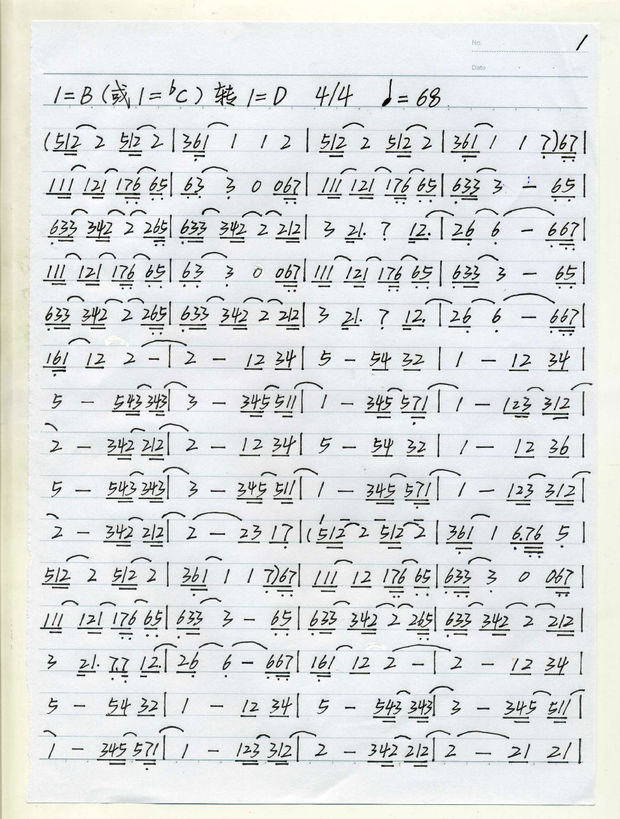 No. 1
Date
1=B (或1=ᵇC) 转1=D 4/4 ♩=68
(512 2 512 2 | 361 1 1 2 | 512 2 512 2 | 361 1 1 7)67 |
111 121 176 65 | 63 3 0 067 | 111 121 176 65 | 633 3 - 65 |
633 342 2 265 | 633 342 2 212 | 3 21. 7 12. | 26 6 - 667 |
111 121 176 65 | 63 3 0 067 | 111 121 176 65 | 633 3 - 65 |
633 342 2 265 | 633 342 2 212 | 3 21. 7 12. | 26 6 - 667 |
161 12 2 - | 2 - 12 34 | 5 - 54 32 | 1 - 12 34 |
5 - 543 343 | 3 - 345 511 | 1 - 345 571 | 1 - 123 312 |
2 - 342 212 | 2 - 12 34 | 5 - 54 32 | 1 - 12 36 |
5 - 543 343 | 3 - 345 511 | 1 - 345 571 | 1 - 123 312 |
2 - 342 212 | 2 - 23 17 | (512 2 512 2 | 361 1 6.76 5 |
512 2 512 2 | 361 1 1 7)67 | 111 12 176 65 | 633 3 0 067 |
111 121 176 65 | 633 3 - 65 | 633 342 2 265 | 633 342 2 212 |
3 21. 77 12. | 26 6 - 667 | 161 12 2 - | 2 - 12 34 |
5 - 54 32 | 1 - 12 34 | 5 - 543 343 | 3 - 345 511 |
1 - 345 571 | 1 - 123 312 | 2 - 342 212 | 2 - 21 21 |